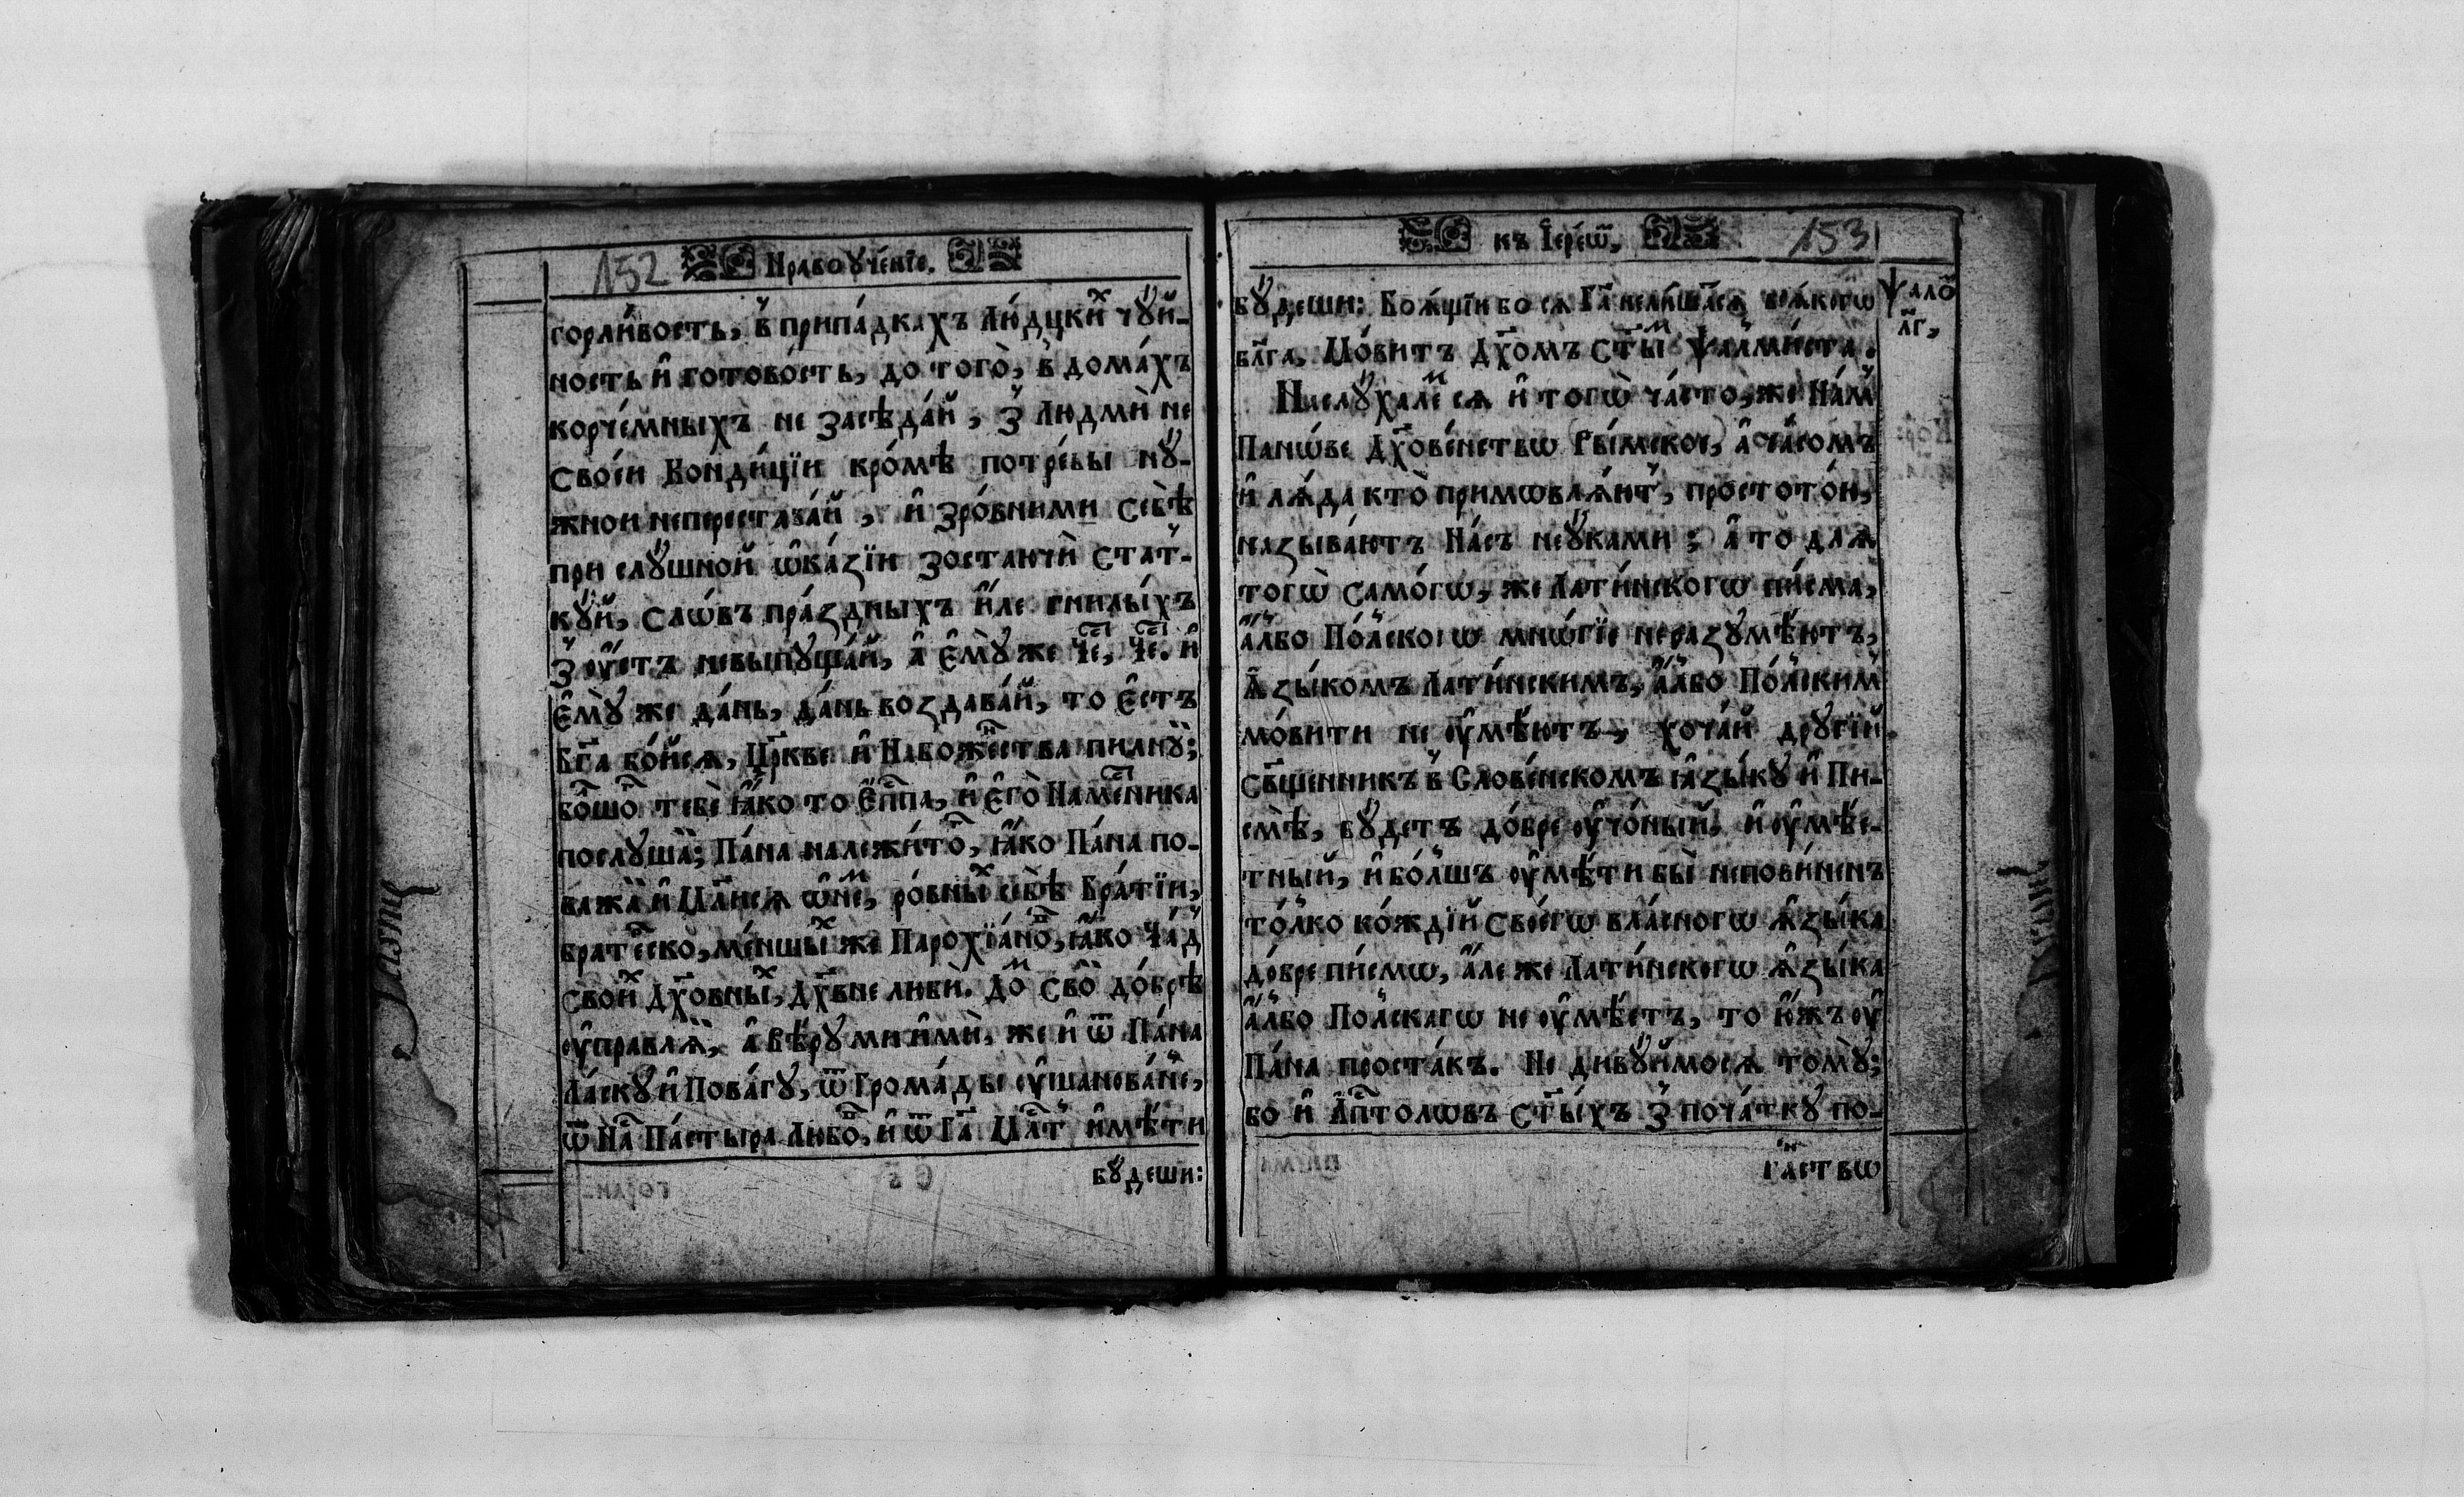 152 Нравоꙋче́нїе.
горли́вость, в̾ припа́дкахъ Лю́дцкиⷯ чꙋ́й-
ность и҆ гото́вость, до того̀, в̾ дома́хъ
корче́мныхъ не засѣда́й, З̾ Людмѝ не
свое́и Конди́цїи кро́мѣ потре́бы нꙋ-
жнои неперестава́й, и҆ зро́вними себѣ̀
при слꙋ́шной ѡ҆ка́зїи зостаючѝ стат̾-
кꙋ́й, слѡ́въ пра́здныхъ и҆ле гнилы́хъ
З̾ ѹ҆́стъ невыпꙋща́й, а҆ Е҆мꙋ̀ же Че́ⷭ҇, Че́ⷭ҇. и҆
Е҆мꙋ̀ же да́нь, да́нь воздава́й, то є҆́стъ
Бг҃а бо́йсѧ, Цр҃кве и҆ Набоже́ⷭ҇нства пилнꙋ́й;
бо́ⷧ҇шоⷢ҇ тебѐ ꙗ҆́ко то Е҆пⷭ҇па, и҆ Е҆го̀ Намѣ́ⷭ҇ника
послꙋша́й; Па́на належи́тоⷢ҇, ꙗ҆́ко Па́на по-
важа́й и҆ Цл҃нсѧ ѡ҆неⷨ, ро́вныⷯ себѣ̀ Бра́тїи,
братⷭ҇еско, ме́ншыⷯ же Парохїа́ноⷡ, ꙗ҆́ко Ча́д̾
своиⷯ Дх҃о́вныⷯ, Дх҃о́вне любѝ. До́ⷨ сво́й до́брѣ
ѹ҆правлѧ́й, а҆ вѣ́рꙋ мнѝ и҆мѝ, же и҆ ѿ Па́на
Ла́скꙋ и҆ Пова́гꙋ, ѿ Грома́ды ѹ҆шанова́нїе,
ѿ На́ⷭ҇ Па́стыра Любо́ⷡ҇, и҆ ѿ Гⷭ҇а Цл҃ⷭ҇т̾ и҆мѣ́ти
бꙋ́деши:
къ І҆ере́ѡⷨ, 153
бꙋ́деши: Боѧ́щїи бо сѧ Гⷭ҇а нелиша́тсѧ всѧ́кагѡ
бл҃га, Мо́витъ Дх҃омъ ст҃ыⷨ Ѱалми́ста.
Ѱалоⷨ
л҃г,
Наслꙋха́леⷨ сѧ и҆ тогѡ̀ ча́сто, же На́м̾
Панѡ́ве Дх҃ове́нство Ры́мское, а҆ ча́сомъ
и҆ лѧ́да кто̀ примовлѧ́ют̾, простото́ю,
называ́ютъ На́съ неꙋ́ками; а҆ то длѧ
тогѡ̀ само́гѡ, же Лати́нскогѡ пи́сма,
а҆́лбо По́лскогѡ мнѡ́гїе неразꙋмѣ́ютъ,
ѧ҆зы́комъ Лати́нскимъ, а҆́лбо По́лским̾
мо́вити не ѹ҆мѣ́ютъ, хоча́й дрꙋгі́й
Сщ҃е́нникъ в̾ Слове́нскомъ ꙗ҆зы́кꙋ и҆ Пи-
смѣ̀, бꙋ́детъ до́бре ѹ҆чо́ный, и҆ ѹ҆мѣ́е-
тный, и҆ бо́лшъ ѹ҆мѣ́ти бы̀ непови́ненъ
то́лко ко́ждїй своегѡ̀ вла́сногѡ ѧ҆зы́ка
до́бре писмѡ̀, а҆́ле же Лати́нскогѡ ѧ҆зы́ка
а҆́лбо По́лскагѡ не ѹ҆мѣ́етъ, то и҆́жъ ѹ҆
Па́на проста́къ. Не дивꙋ́ймосѧ томꙋ̀;
бо и҆ А҆пⷭ҇толѡвъ ст҃ы́хъ З̾ поча́ткꙋ по-
га́нствѡ